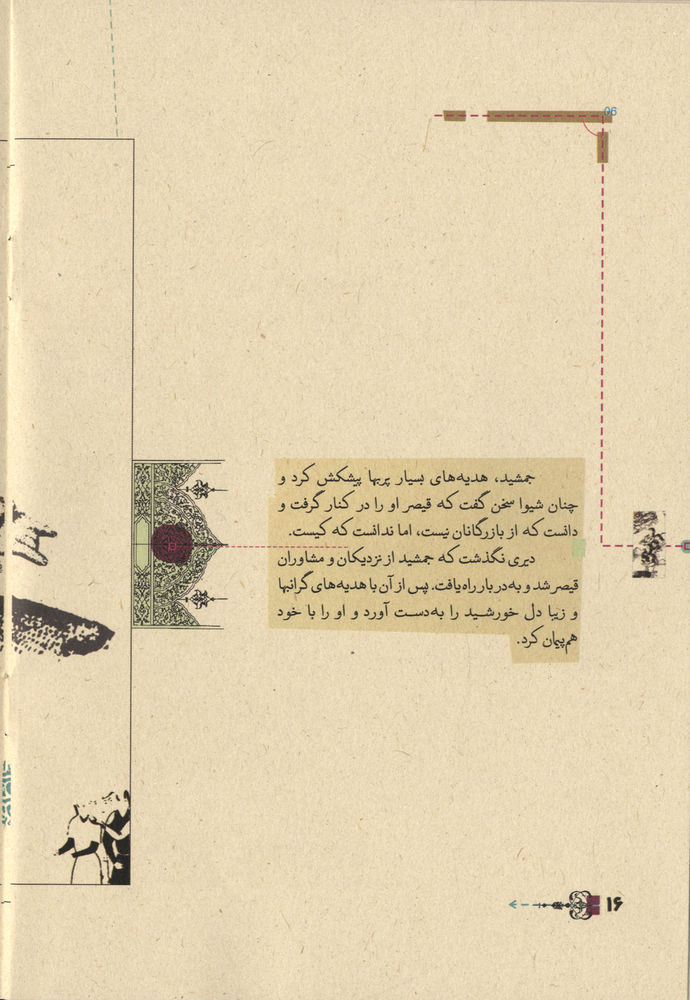 06
جمشید، هدیه‌های بسیار پربها پیشکش کرد و
چنان شیوا سخن گفت که قیصر او را در کنار گرفت و
دانست که از بازرگانان نیست، اما ندانست که کیست.
دیری نگذشت که جمشید از نزدیکان و مشاوران
قیصر شد و به دربار راه یافت. پس از آن با هدیه‌های گرانبها
و زیبا دل خورشید را به‌دست آورد و او را با خود
هم‌پیمان کرد.
۱۶